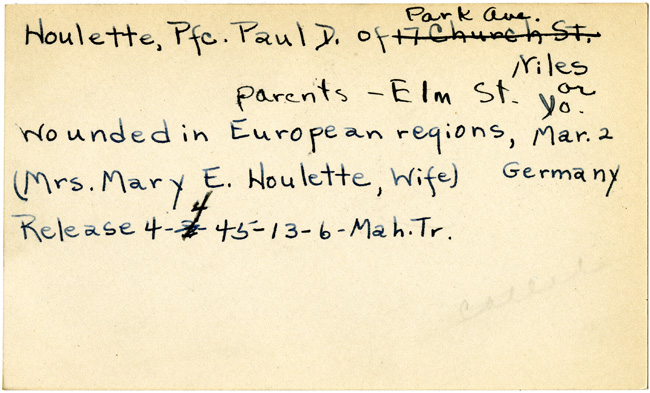 Houlette, Pfc. Paul D. of Park Ave. 17 Church St.
Niles
parents - Elm St. or Yo.
wounded in European regions, Mar. 2
(Mrs. Mary E. Houlette, Wife) Germany
Release 4-4 45-13-6-Mah.Tr.
called